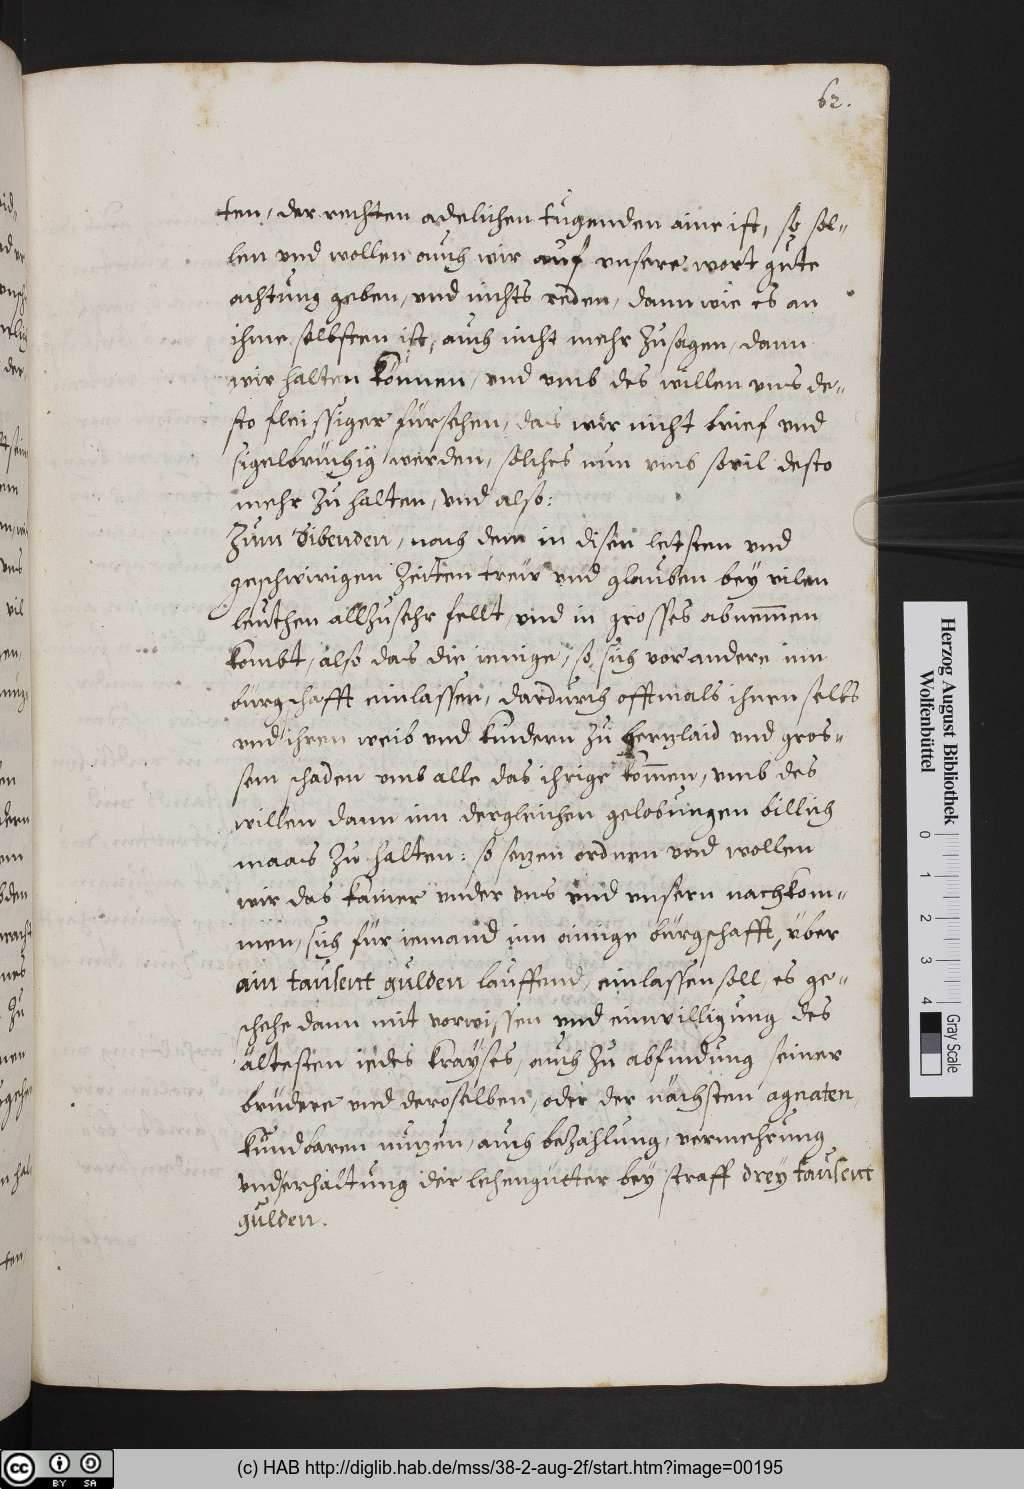 62.
ten, der rechten adelichen tugenden aine ist, so sol-
len vnd wollen auch wir auf vnsere wort gute
achtung geben, vnd nichts reden, dann wie es an
ihme selbsten ist, auch nicht mehr zusagen, dann
wir halten können, vnd vmb des willen vns de-
sto fleissiger fürsehen, das wir nicht brief vnd
sigelbrüchig werden, solches nun vmb sovil desto
mehr zu halten, vnd also:
Zum Sibenden, nach dem in disen letsten vnd
geschwirigen Zeiten treüw vnd glauben bey vilen
leuthen allzusehr fellt, vnd in grosses abnemmen
kombt, also das die ienige, so sich vor andere inn
bürgschafft einlassen, dardurch offtmals ihnen selbs
vnd ihren weib vnd kindern zu herzlaid vnd gros-
sem schaden vmb alle das ihrige kommen, vmb des
willen dann inn dergleichen gelobungen billich
maas zu halten: so sezen ordnen vnd wollen
wir das kainer vnder vns vnd vnsern nachkom-
men, sich für iemand inn ainige bürgschafft, über
ain tausent gulden lauffend, einlassen soll, es ge-
schehe dann mit vorwissen vnd einwilligung des
ältesten iedes krayses, auch zu abfindung seiner
brüdere vnd deroselben, oder der nächsten agnaten,
kundbaren nuzen, auch bezahlung, vermehrung
vnderhaltung der lehengütter bey straff drey tausent
gulden.
Herzog August Bibliothek
Wolfenbüttel
0 1 2 3 4
Gray Scale
cc BY SA
(c) HAB http://diglib.hab.de/mss/38-2-aug-2f/start.htm?image=00195